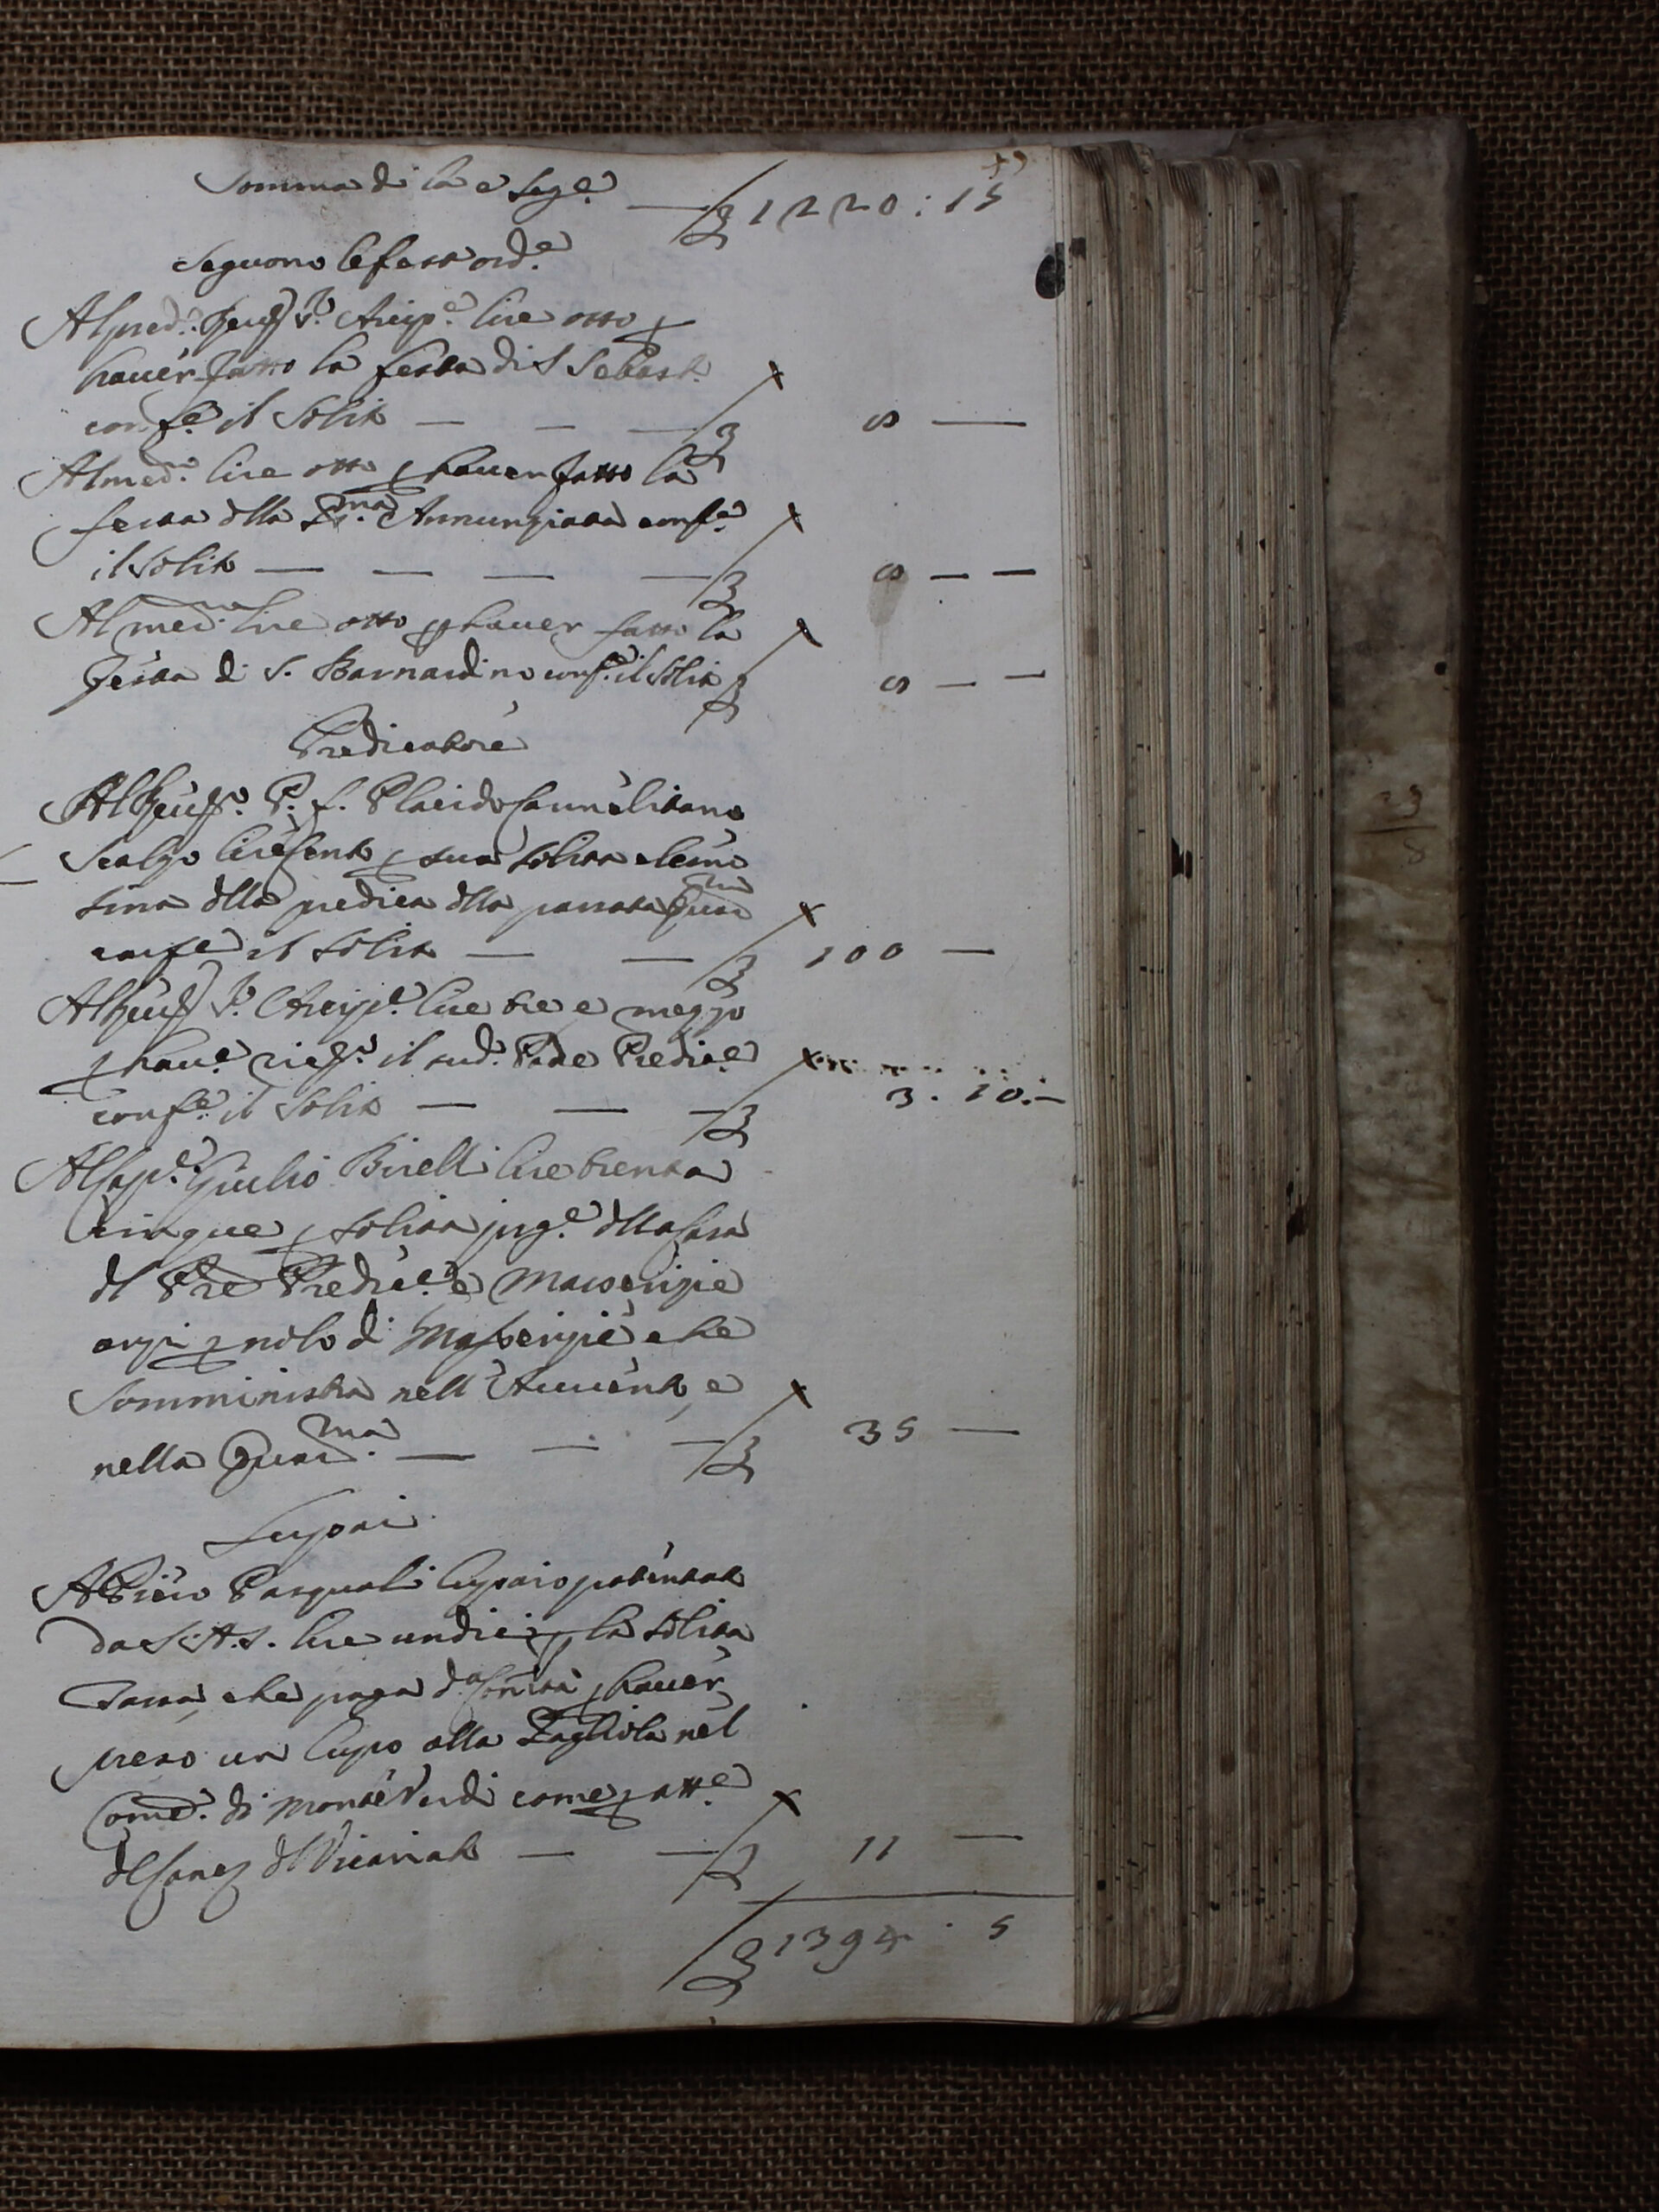 Somma di la e seg.e £ 1220 : 15
Seguono le feste ord.e
Al pred.o S.r Arcip.e lire otto p
haver fatto la festa di S Sebast.o
conf.e il solito — — — £ 8 —
Al med.o lire otto p haver fatto la
festa dlla SS.ma Annunziata conf.e
il solito — — — — £ 8 — —
Al med.mo lire otto p haver fatto la
festa di S. Barnardino conf.e il solito £ 8 — —
Predicatore
Al P. f. Placido Carmelitano
Scalzo lire cento p sua solita elemo
sina dlla predica dlla passata Quar.ma
conf.e il solito — — £ 100 —
Al S.r Arcip.e lire tre e mezzo
p hau.e il sud.o Padre Predic.e
conf.e il solito — — — £ 3 . 10 . —
Al Cap.e Giulio Birelli lire trenta
cinque p solita pig.e dlla Casa
dl Pre Predic.e e Masserizie
anzi p nolo di Masserizie che
somministra nell Auuento, e
nella Quar.ma — — — £ 35 —
Lupai
A Piero Pasquali lupaio patentato
da S. A. S. lire undici p la solita
Tassa, che paga d.a Com.ità p hauer
preso un lupo alla Tagliola nel
Com.e di Monte Verdi come p att.o
dl Canc.e dl Vicariato — — £ 11 —
£ 1394 . 5